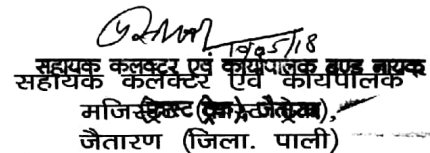 19/05/18
सहायक कलक्टर एवं कार्यपालक दण्ड नायक
सहायक कलक्टर एवं कार्यपालक
मजिस्ट्रेट
जैतारण (जिला. पाली)